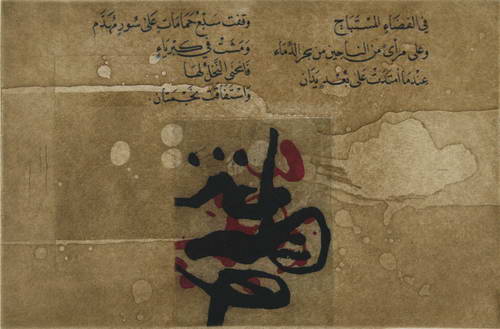 في الفضاء المستباح
وعلى مرأى من الناجين من بحر الدماء
عندما امتدت على بعد يدان
وقفت سبع حمامات على سور مهدم
ومشت في كبرياء
فانحنى النخل لها
واستفاقت نجمتان